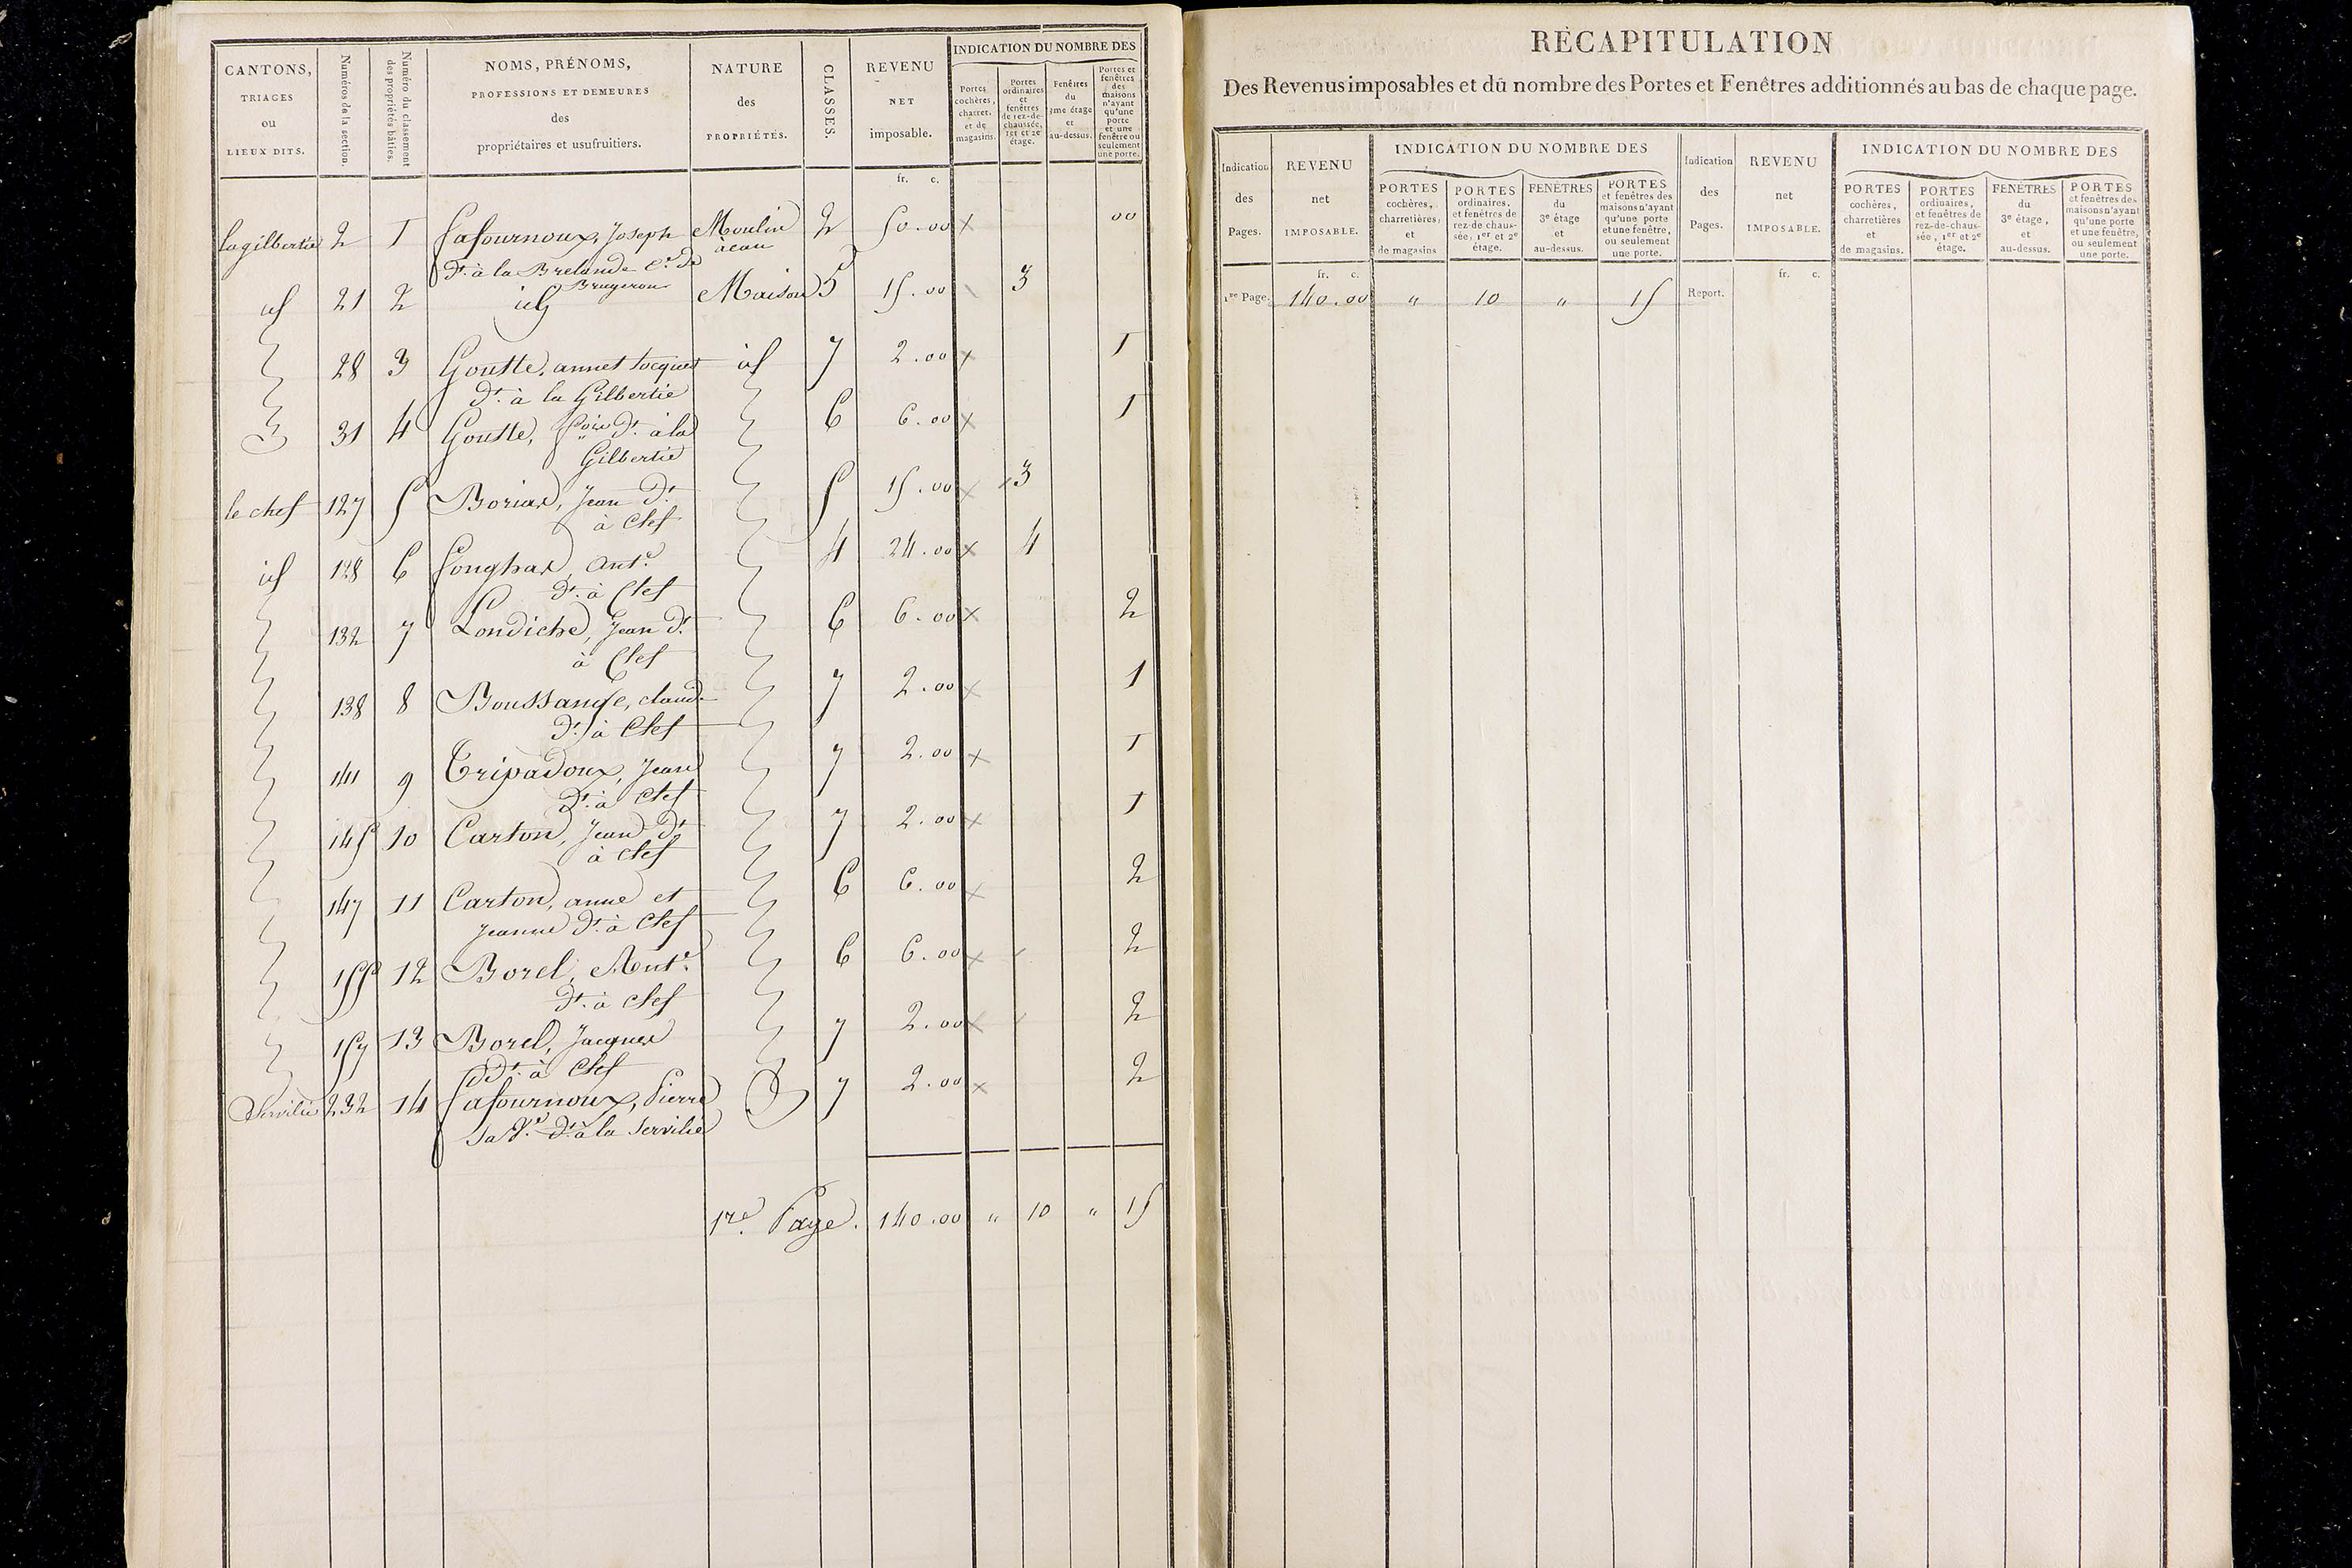 CANTONS, TRIAGES ou LIEUX DITS.
Numéros de la section.
Numéro du classement des propriétés bâties.
NOMS, PRÉNOMS, PROFESSIONS ET DEMEURES des propriétaires et usufruitiers.
NATURE des PROPRIÉTÉS.
CLASSES.
REVENU NET imposable.
INDICATION DU NOMBRE DES
Portes cochères, charret. et de magasins.
Portes ordinaires et fenêtres de rez-de-chaussée, 1er et 2e étage.
Fenêtres du 3me étage et au-dessus.
Portes et fenêtres des maisons n'ayant qu'une porte et une fenêtre ou seulement une porte.
fr. c.
la gilbertie 2 1 Lafournoux, Joseph Moulin 2 50.00 x 00
dt. à la Brelande Ce. de à eau
Brugeron
id 21 2 id Maison 5 15.00 3
28 3 Goutte, annet Jocquet id 7 2.00 x 1
dt. à la Gilbertie
31 4 Goutte, dt. à la 6 6.00 x 1
Gilbertie
le chef 127 5 Boriar, Jean dt. 5 15.00 x 3
à Chef
id 128 6 Longhar, Ante. 4 24.00 x 4
dt. à Chef
132 7 Londiche, Jean dt. 6 6.00 x 2
à Chef
138 8 Boussange, claude 7 2.00 x 1
dt. à Chef
141 9 Tripadoux, Jean 7 2.00 x 1
dt. à Chef
145 10 Carton, Jean dt. 7 2.00 x 1
à Chef
147 11 Carton, anne et 6 6.00 x 2
Jeanne dt. à Chef
155 12 Borel, Ante. 6 6.00 x 2
dt. à Chef
157 13 Borel, Jacques 7 2.00 x 2
dt. à Chef
Servilie 232 14 Lafournoux, Pierre 7 2.00 x 2
sa Ve. dt. à la Servilie
1re. Page. 140.00 " 10 " 15
RÉCAPITULATION
Des Revenus imposables et du nombre des Portes et Fenêtres additionnés au bas de chaque page.
Indication des Pages.
REVENU net IMPOSABLE.
INDICATION DU NOMBRE DES
PORTES cochères, charretières, et de magasins
PORTES ordinaires, et fenêtres de rez-de-chaussée, 1er et 2e étage.
FENÊTRES du 3e étage et au-dessus.
PORTES et fenêtres des maisons n'ayant qu'une porte et une fenêtre, ou seulement une porte.
Indication des Pages.
REVENU net IMPOSABLE.
INDICATION DU NOMBRE DES
PORTES cochères, charretières et de magasins.
PORTES ordinaires, et fenêtres de rez-de-chaussée, 1er et 2e étage.
FENÊTRES du 3e étage, et au-dessus.
PORTES et fenêtres des maisons n'ayant qu'une porte et une fenêtre, ou seulement une porte.
fr. c. fr. c.
1re Page. 140.00 " 10 " 15 Report.